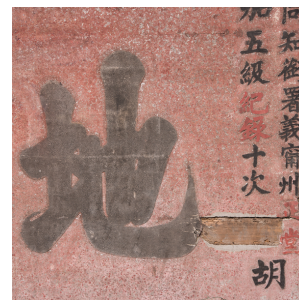 同知銜署義甯州
加五級紀錄十次
胡
地